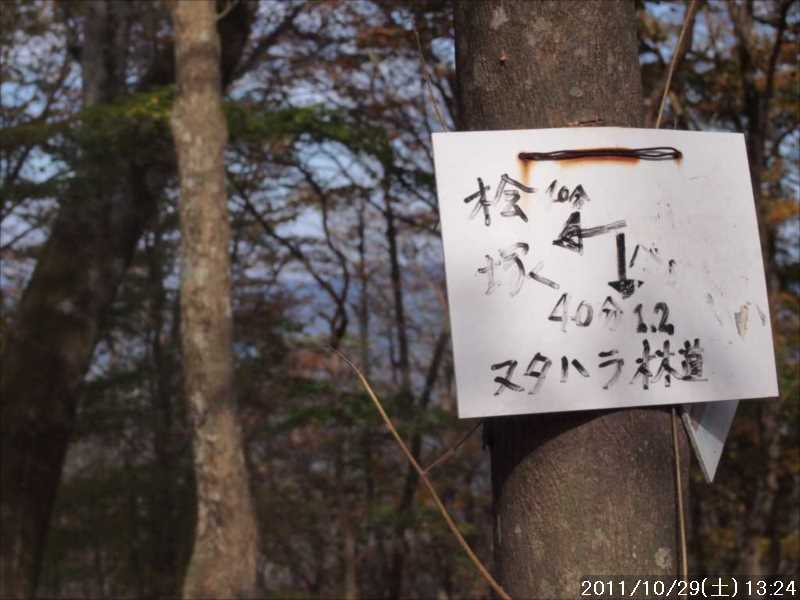 桧 10分
塚く
40分 1.2
ヌタハラ林道
2011/10/29(土) 13:24